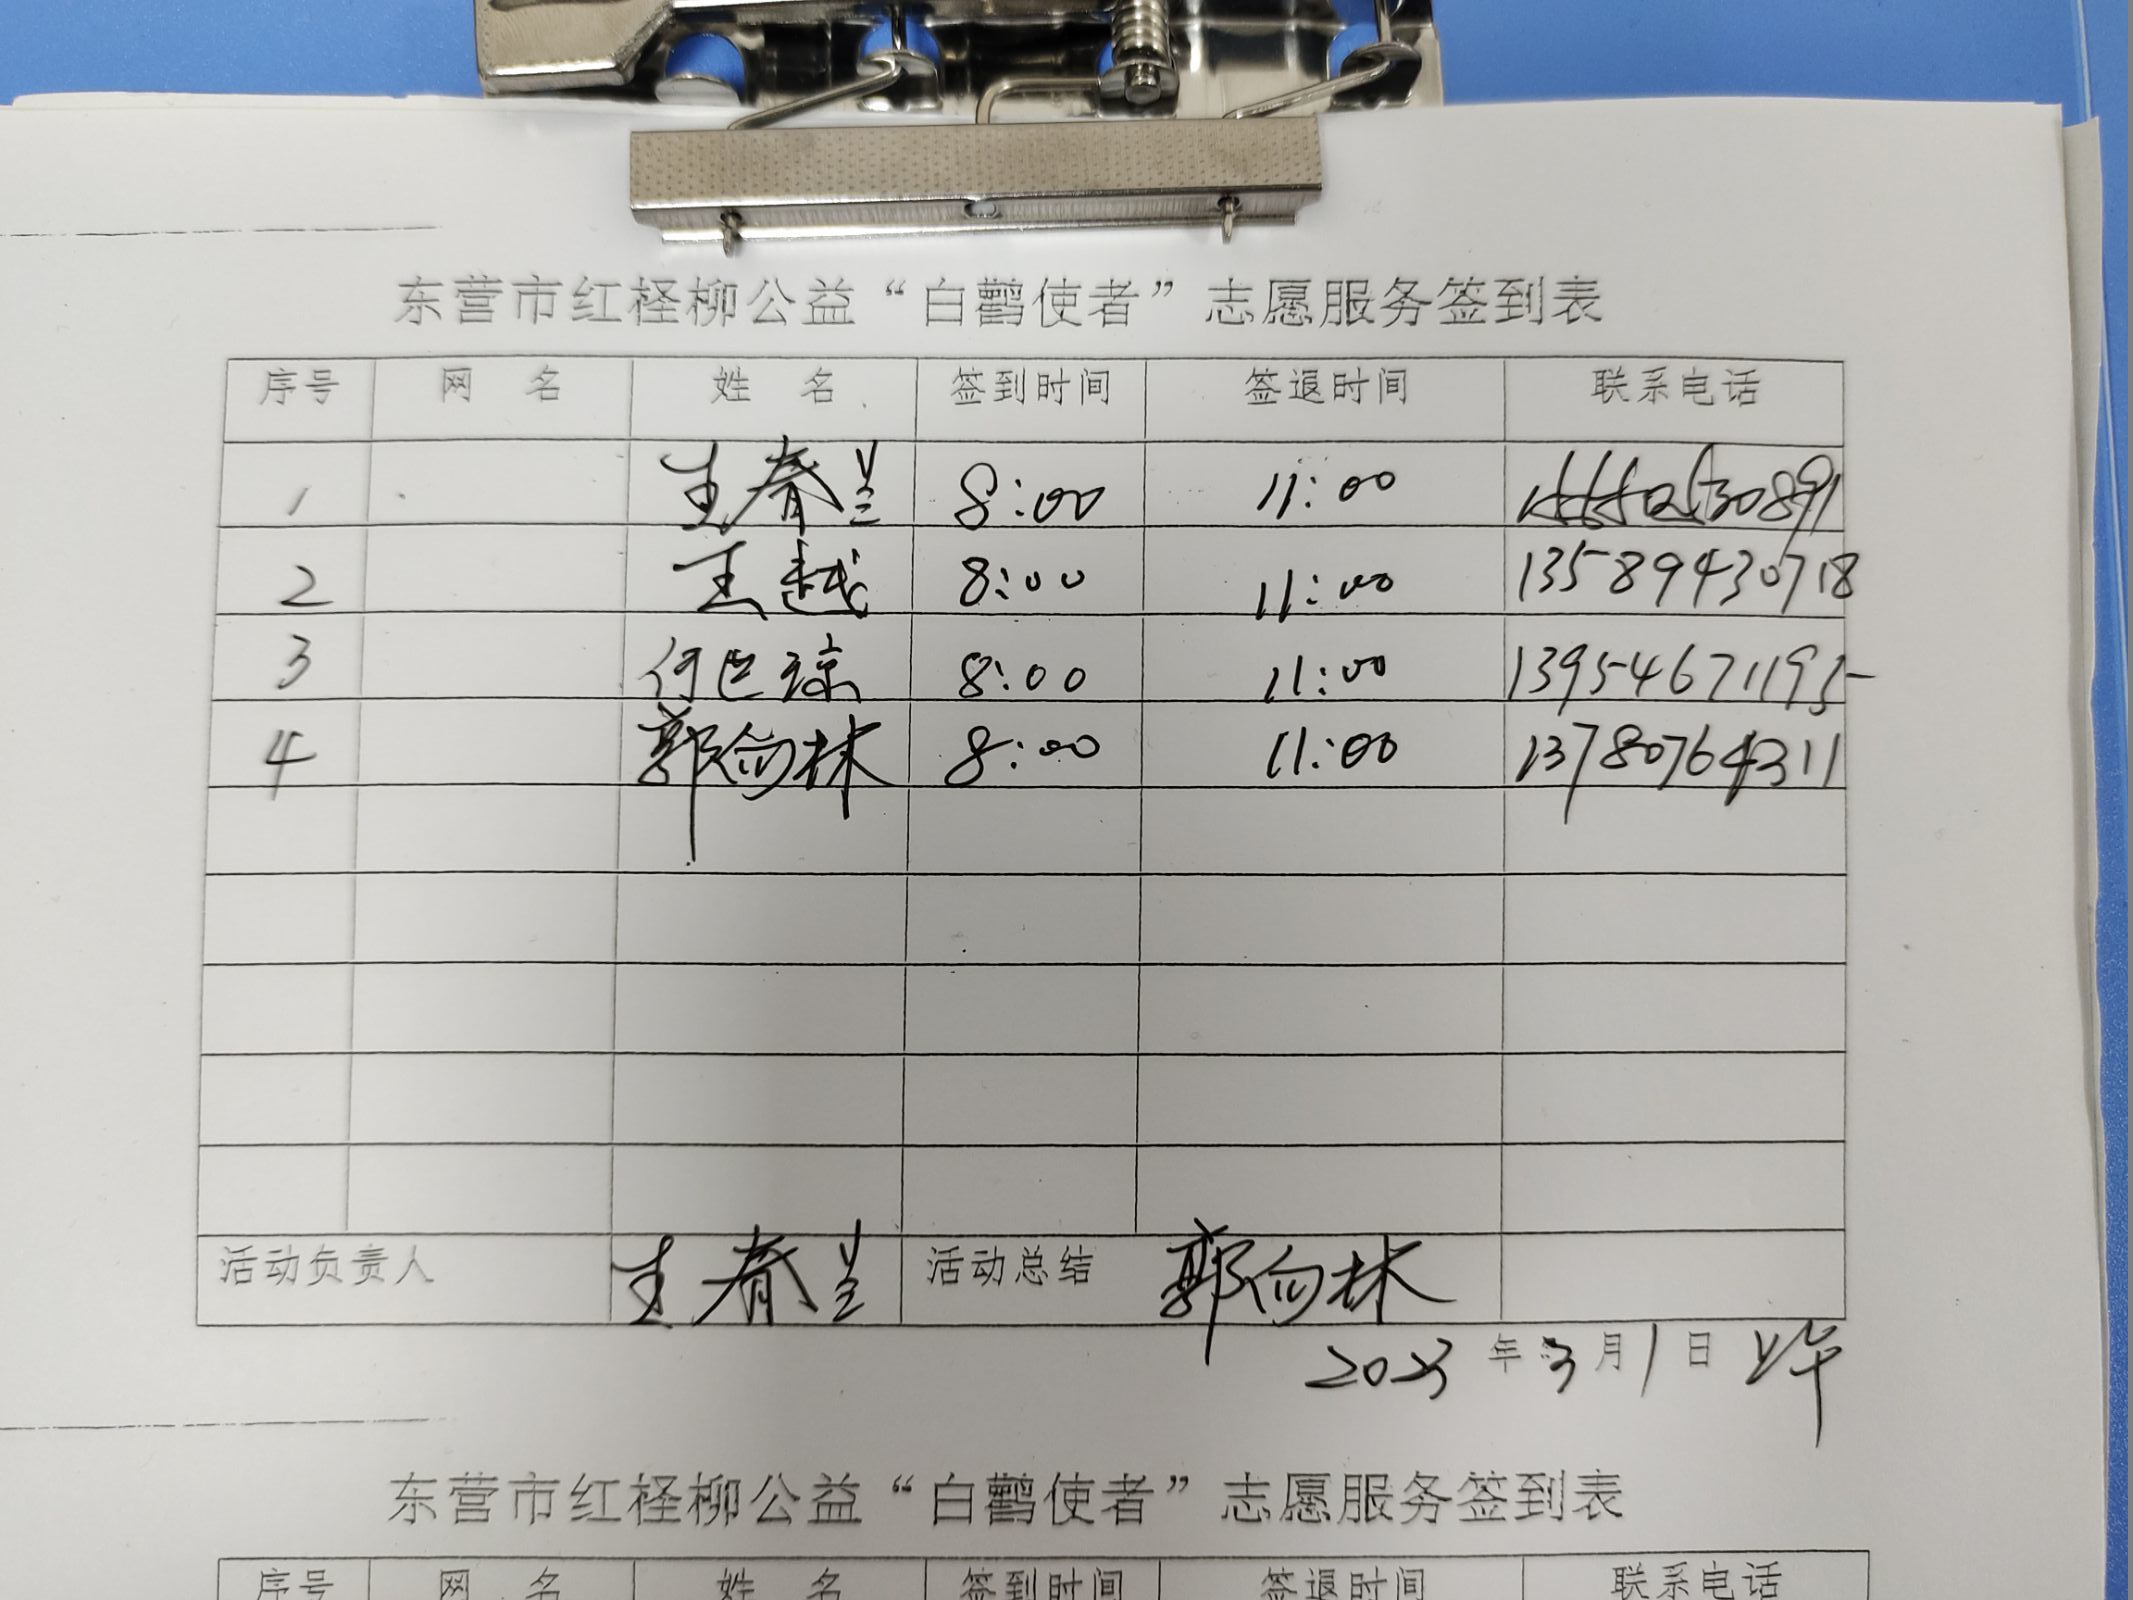 东营市红柽柳公益“白鹳使者”志愿服务签到表
序号 网 名 姓 名 签到时间 签退时间 联系电话
1 王春兰 8:00 11:00
2 王越 8:00 11:00 13589430718
3 何巨琼 8:00 11:00 13954671195
4 郭向林 8:00 11:00 13780764311
活动负责人 王春兰 活动总结 郭向林
2023 年 3 月 1 日 上午
东营市红柽柳公益“白鹳使者”志愿服务签到表
序号 网 名 姓 名 签到时间 签退时间 联系电话